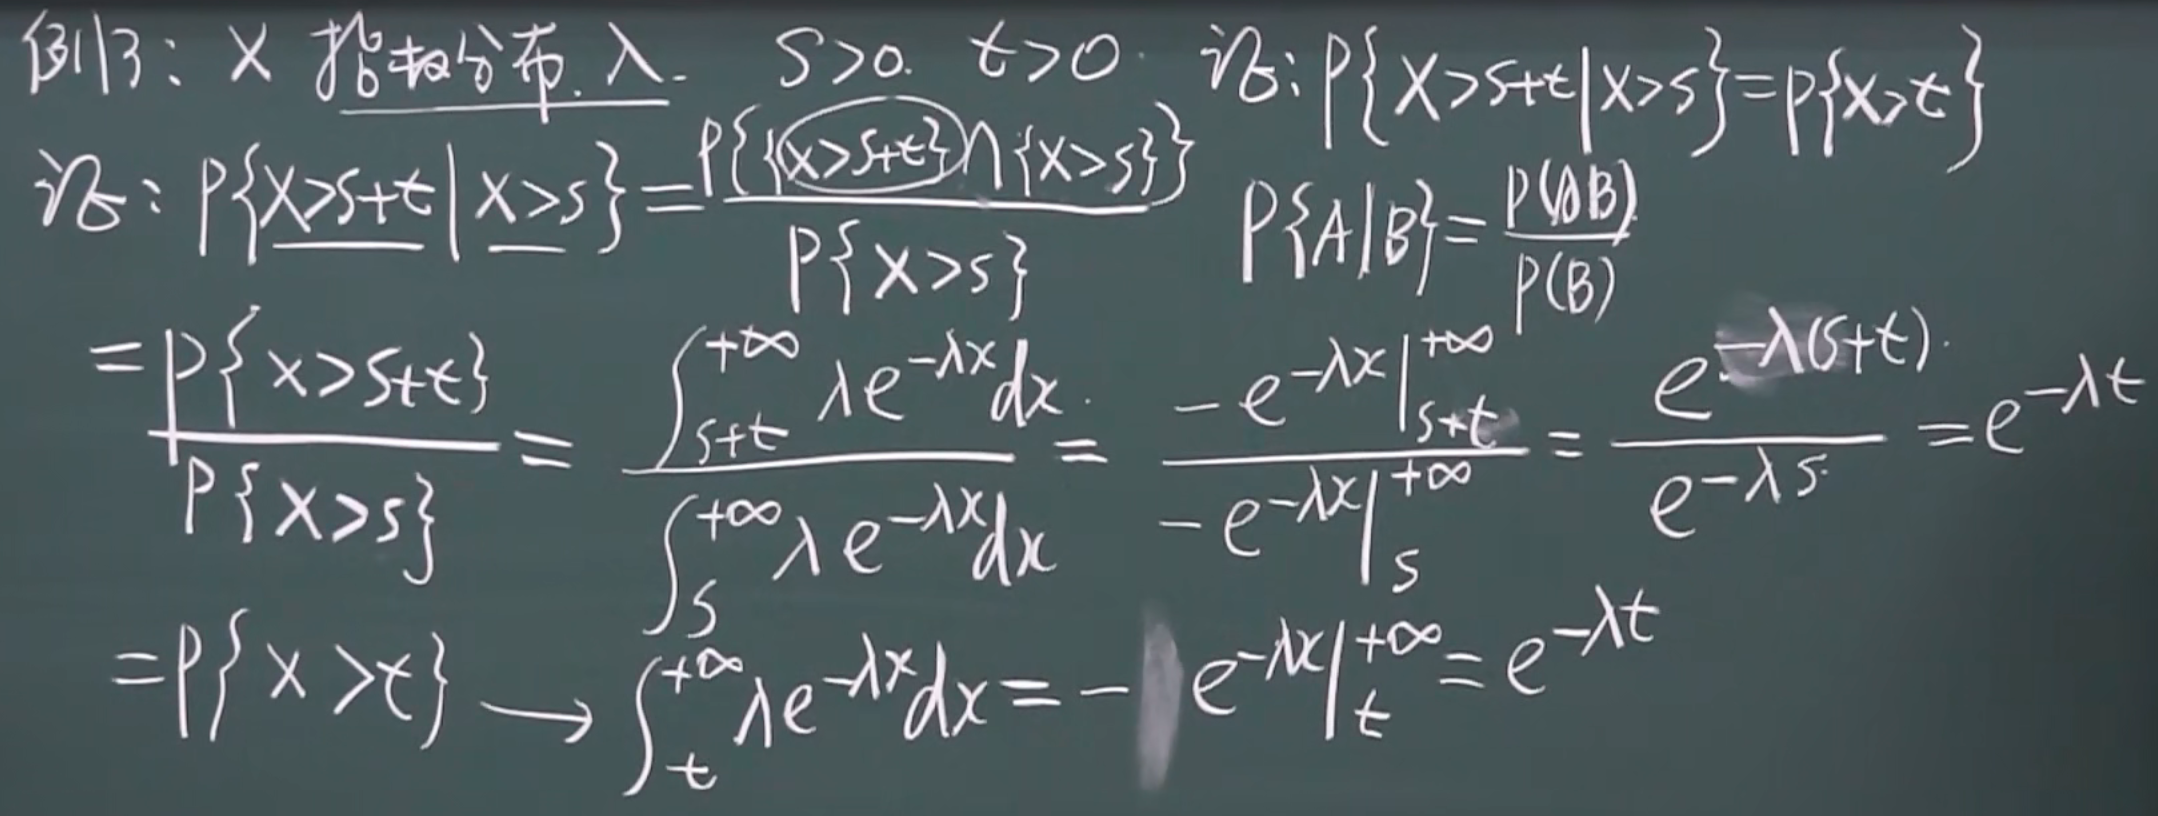 例3: X 指数分布. λ. S>0. t>0. 证: P{X>s+t|X>s}=P{X>t}
证: P{X>s+t|X>s}=P{{X>s+t}∩{X>s}}/P{X>s} P{A|B}=P(AB)/P(B)
=P{X>s+t}/P{X>s}=∫_{s+t}^{+∞} λe^{-λx}dx./∫_{s}^{+∞} λe^{-λx}dx=-e^{-λx}|_{s+t}^{+∞}/-e^{-λx}|_{s}^{+∞}=e^{-λ(s+t)}/e^{-λs}=e^{-λt}
=P{X>t}→∫_{t}^{+∞} λe^{-λx}dx=-e^{-λx}|_{t}^{+∞}=e^{-λt}